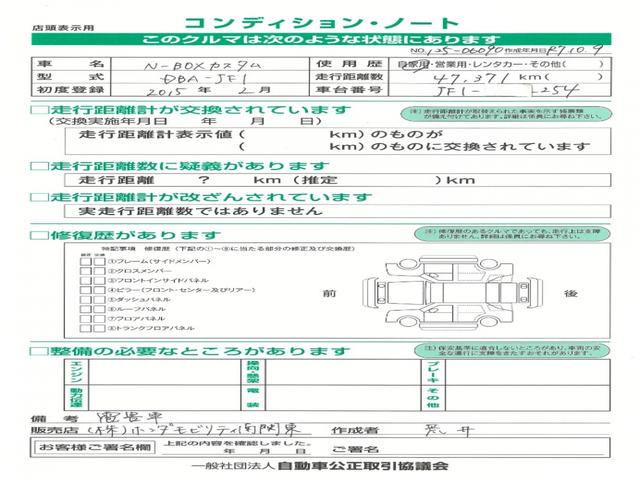 店頭表示用
コンディション・ノート
このクルマは次のような状態にあります
NO.125-06090 作成年月日 R7.10.9
車名 N-BOXカスタム 使用歴 自家用・営業用・レンタカー・その他( )
型式 DBA-JF1 走行距離数 47,371 km( )
初度登録 2015年 2月 車台番号 JF1- 254
□走行距離計が交換されています
(交換実施年月日 年 月 日)
※)走行距離計が取替えられた事実を示す帳票類が備え付けてあります。詳細は係員にお尋ね下さい。
走行距離計表示値( km)のものが
( km)のものに交換されています
□走行距離数に疑義があります
走行距離 ? km(推定 )km
□走行距離計が改ざんされています
実走行距離数ではありません
□修復歴があります
※)修復歴のあるクルマであっても、走行上は支障ありません。詳細は係員にお尋ね下さい。
特記事項 修復歴(下記の①~⑧に当たる部分の修正及び交換歴)
修正 交換
①フレーム(サイドメンバー)
②クロスメンバー
③フロントインサイドパネル
④ピラー(フロント・センター及びリアー)
⑤ダッシュパネル
⑥ルーフパネル
⑦フロアパネル
⑧トランクフロアパネル
前
後
□整備の必要なところがあります
注)保安基準に適合しないところがあり、車両の安全な運行に支障をきたすおそれがあります。
エンジン
操向装置
ブレーキ
動力伝達
電装
その他
備考
販売店 (株)ホンダモビリティ南関東 作成者 荒井
お客様ご署名欄 上記の内容を確認しました。
年 月 日 ご署名
一般社団法人 自動車公正取引協議会